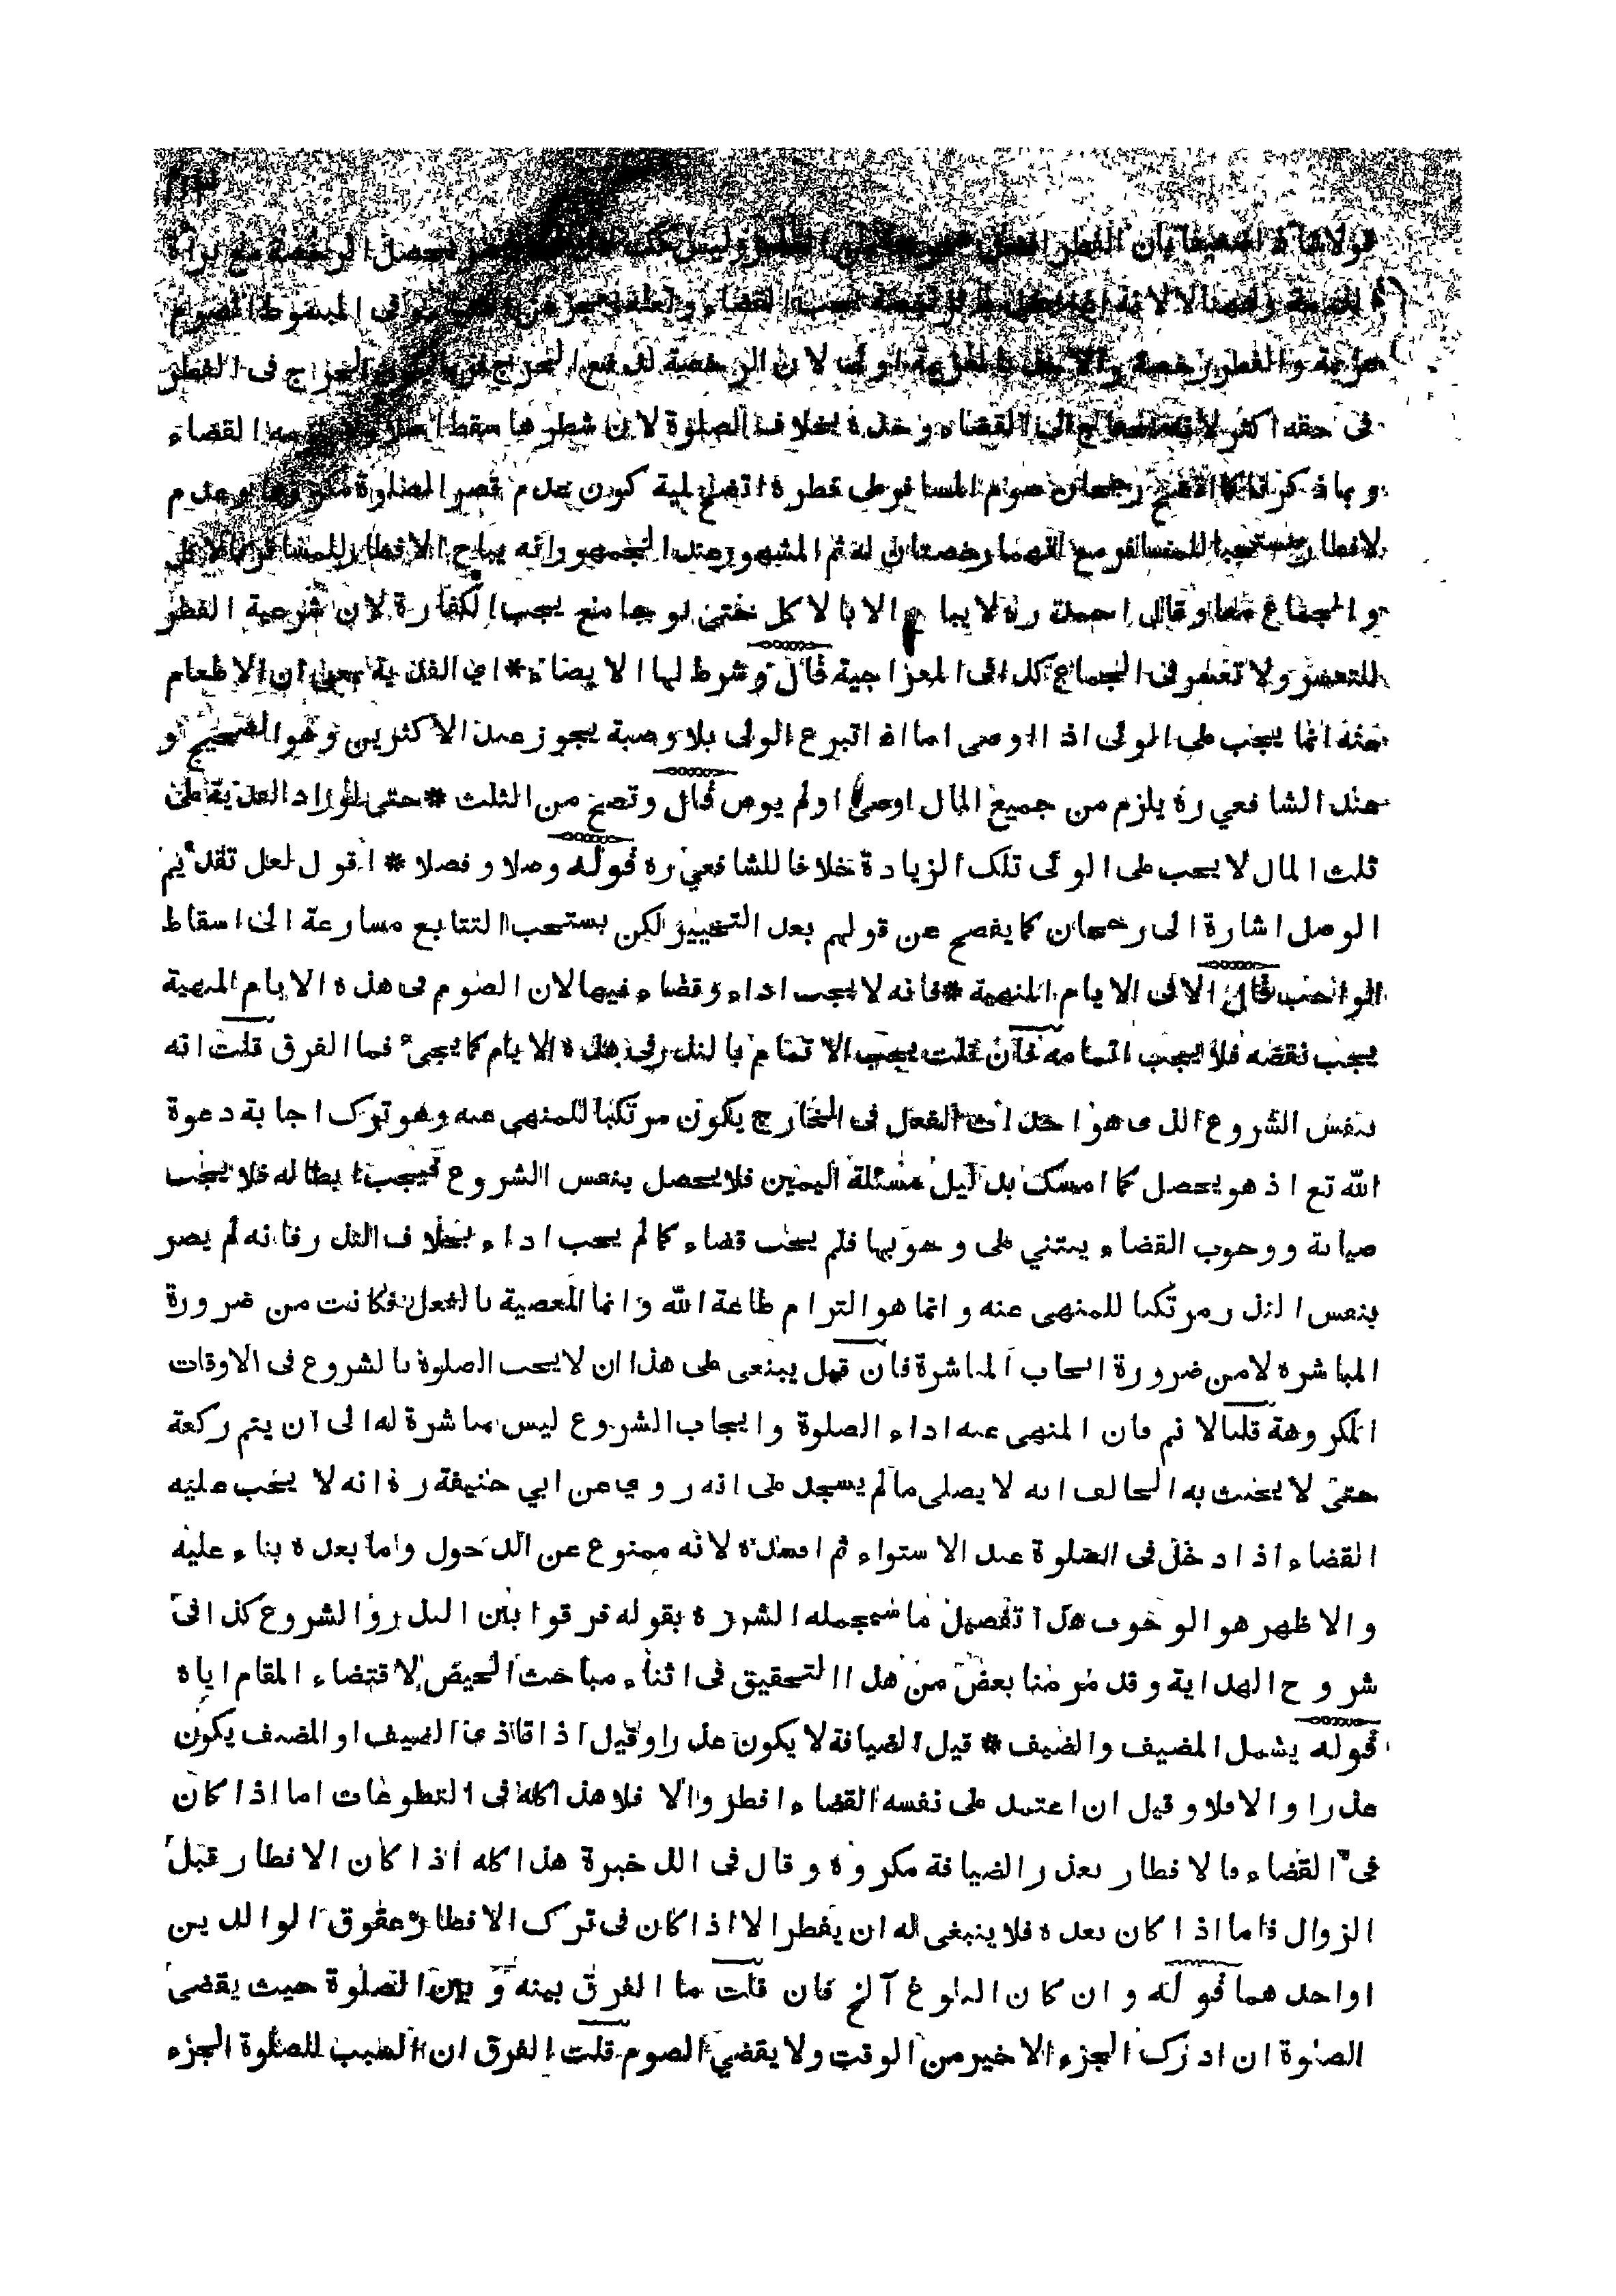 قولا شاذا ضعيفا بان الفطر افضل تحصل الرخصة مع براءة
الذمة
عزيمة والفطر رخصة والاخذ بالعزيمة اولى لان الرخصة لدفع الحرج الحرج فى الفطر
فى حقه اكثر لانه يحتاج الى القضاء وحده بخلاف الصلوة لان شطرها سقط القضاء
و بما ذكرنا كما اتضح رجحان صوم المسافر على فطره اتضح لمية كون عدم قصر الصلوة مكروها وعدم
الافطار مستحبا للمسافر مع انهما رخصتان له ثم المشهور عند الجمهور انه يباح الافطار للمسافر بالاكل
والجماع معا وقال احمد ره لا يباح الا بالاكل حتى لو جامع يجب الكفارة لان شرعية الفطر
للتعسر ولا تعسر فى الجماع كذا فى المعراجية قال وشرط لها الايصاء * اى الفدية يعنى ان الاطعام
عنه انما يجب على الولى اذا اوصى اما اذا تبرع الولى بلا وصية يجوز عند الاكثرين وهو الصحيح و
عند الشافعي ره يلزم من جميع المال اوصى اولم يوص قال وتصح من الثلث * حتى لو زاد الفدية على
ثلث المال لا يجب على الولى تلك الزيادة خلافا للشافعي ره قوله وصلا وفصلا * اقول لعل تقديم
الوصل اشارة الى رجحانه كما يفصح عن قولهم بعد التخيير لكن يستحب التتابع مسارعة الى اسقاط
الواجب قال الا فى الايام المنهية * فانه لا يجب اداء وقضاء فيها لان الصوم فى هذه الايام المنهية
يجب نقضه فلا يجب اتمامه فان قلت يجب الاتمام بالنذر فى هذه الايام كما يجئ فما الفرق قلت انه
بنفس الشروع الذى هو احداث الفعل فى الخارج يكون مرتكبا للمنهى عنه وهو ترك اجابة دعوة
الله تع اذ هو يحصل كما امسك بدليل مسئلة اليمين فلا يحصل بنفس الشروع فيجب ابطاله فلا يجب
صيانة ووجوب القضاء يبتني على وجوبها فلم يجب قضاء كما لم يجب اداء بخلاف النذر فانه لم يصر
بنفس النذر مرتكبا للمنهى عنه وانما هو التزام طاعة الله وانما المعصية بالفعل فكانت من ضرورة
المباشرة لا من ضرورة ايجاب المباشرة فان قيل ينبغى على هذا ان لا يجب الصلوة بالشروع فى الاوقات
المكروهة قلنا لا ثم فان المنهى عنه اداء الصلوة وايجاب الشروع ليس مباشرة له الى ان يتم ركعة
حتى لا يحنث به الحالف انه لا يصلى ما لم يسجد على انه روي عن ابي حنيفة ره انه لا يجب عليه
القضاء اذا دخل فى الصلوة عند الاستواء ثم افسده لانه ممنوع عن الدخول واما بعده بناء عليه
والاظهر هو الوجوب هذا تفصيل ما سيجمله الشره بقوله فرقوا بين النذر والشروع كذا فى
شروح الهداية وقد مر منا بعض من هذا التحقيق فى اثناء مباحث الحيض لاقتضاء المقام اياه
قوله يشمل المضيف والضيف * قيل الضيافة لا يكون عذرا وقيل اذا تاذى الضيف او المضيف يكون
عذرا والا فلا وقيل ان اعتمد على نفسه القضاء افطر والا فلا هذا كله فى التطوعات اما اذا كان
فى القضاء فالافطار بعذر الضيافة مكروه وقال فى الذخيرة هذا كله اذا كان الافطار قبل
الزوال فاما اذا كان بعده فلا ينبغى له ان يفطر الا اذا كان فى ترك الافطار عقوق الوالدين
او احدهما قوله وان كان البلوغ آلخ فان قلت ما الفرق بينه و بين الصلوة حيث يقضى
الصلوة ان ادرك الجزء الاخير من الوقت ولا يقضي الصوم قلت الفرق ان السبب للصلوة الجزء